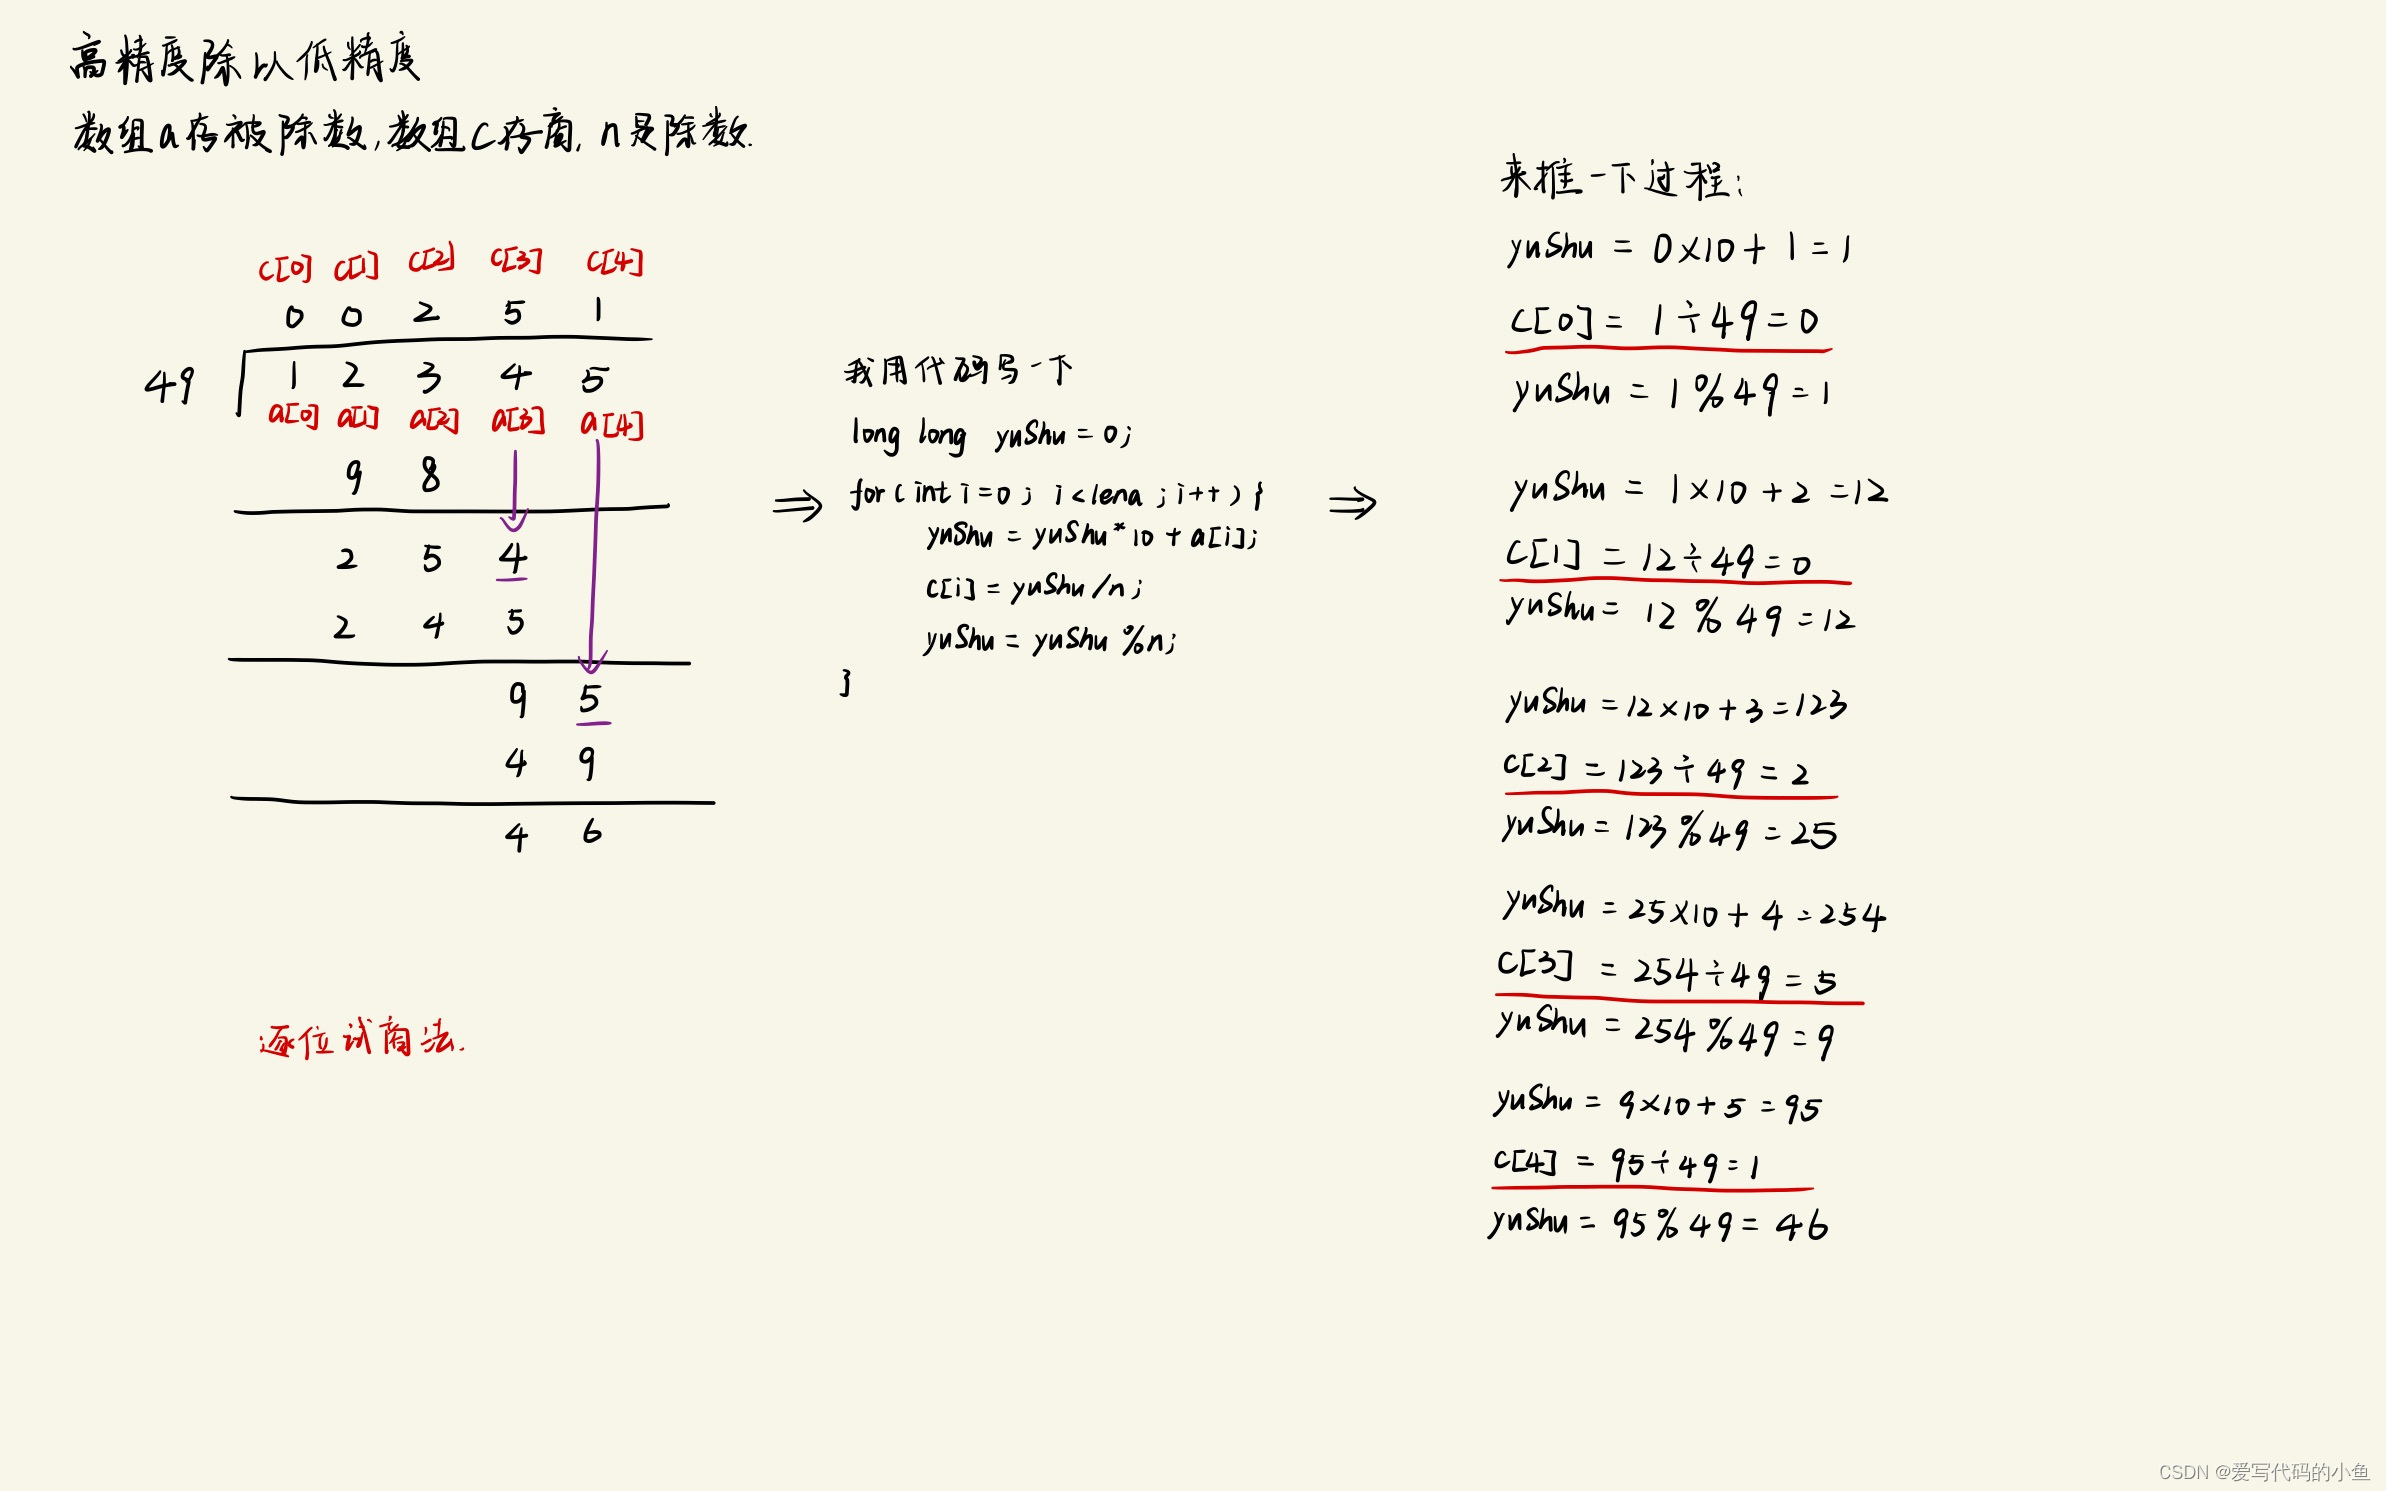 高精度除以低精度
数组a存被除数,数组c存商, n是除数.
c[0] c[1] c[2] c[3] c[4]
0 0 2 5 1
49 1 2 3 4 5
a[0] a[1] a[2] a[3] a[4]
9 8
2 5 4
2 4 5
9 5
4 9
4 6
逐位试商法.
⇒
我用代码写一下
long long yuShu = 0;
for(int i=0; i<lena; i++){
yuShu = yuShu*10 + a[i];
c[i] = yuShu/n;
yuShu = yuShu %n;
}
⇒
来推一下过程:
yuShu = 0×10+1=1
C[0] = 1÷49=0
yuShu = 1%49=1
yuShu = 1×10+2=12
C[1] = 12÷49=0
yuShu = 12%49=12
yuShu = 12×10+3=123
C[2] = 123÷49=2
yuShu = 123%49=25
yuShu = 25×10+4=254
C[3] = 254÷49=5
yuShu = 254%49=9
yuShu = 9×10+5=95
C[4] = 95÷49=1
yuShu = 95%49=46
CSDN @爱写代码的小鱼